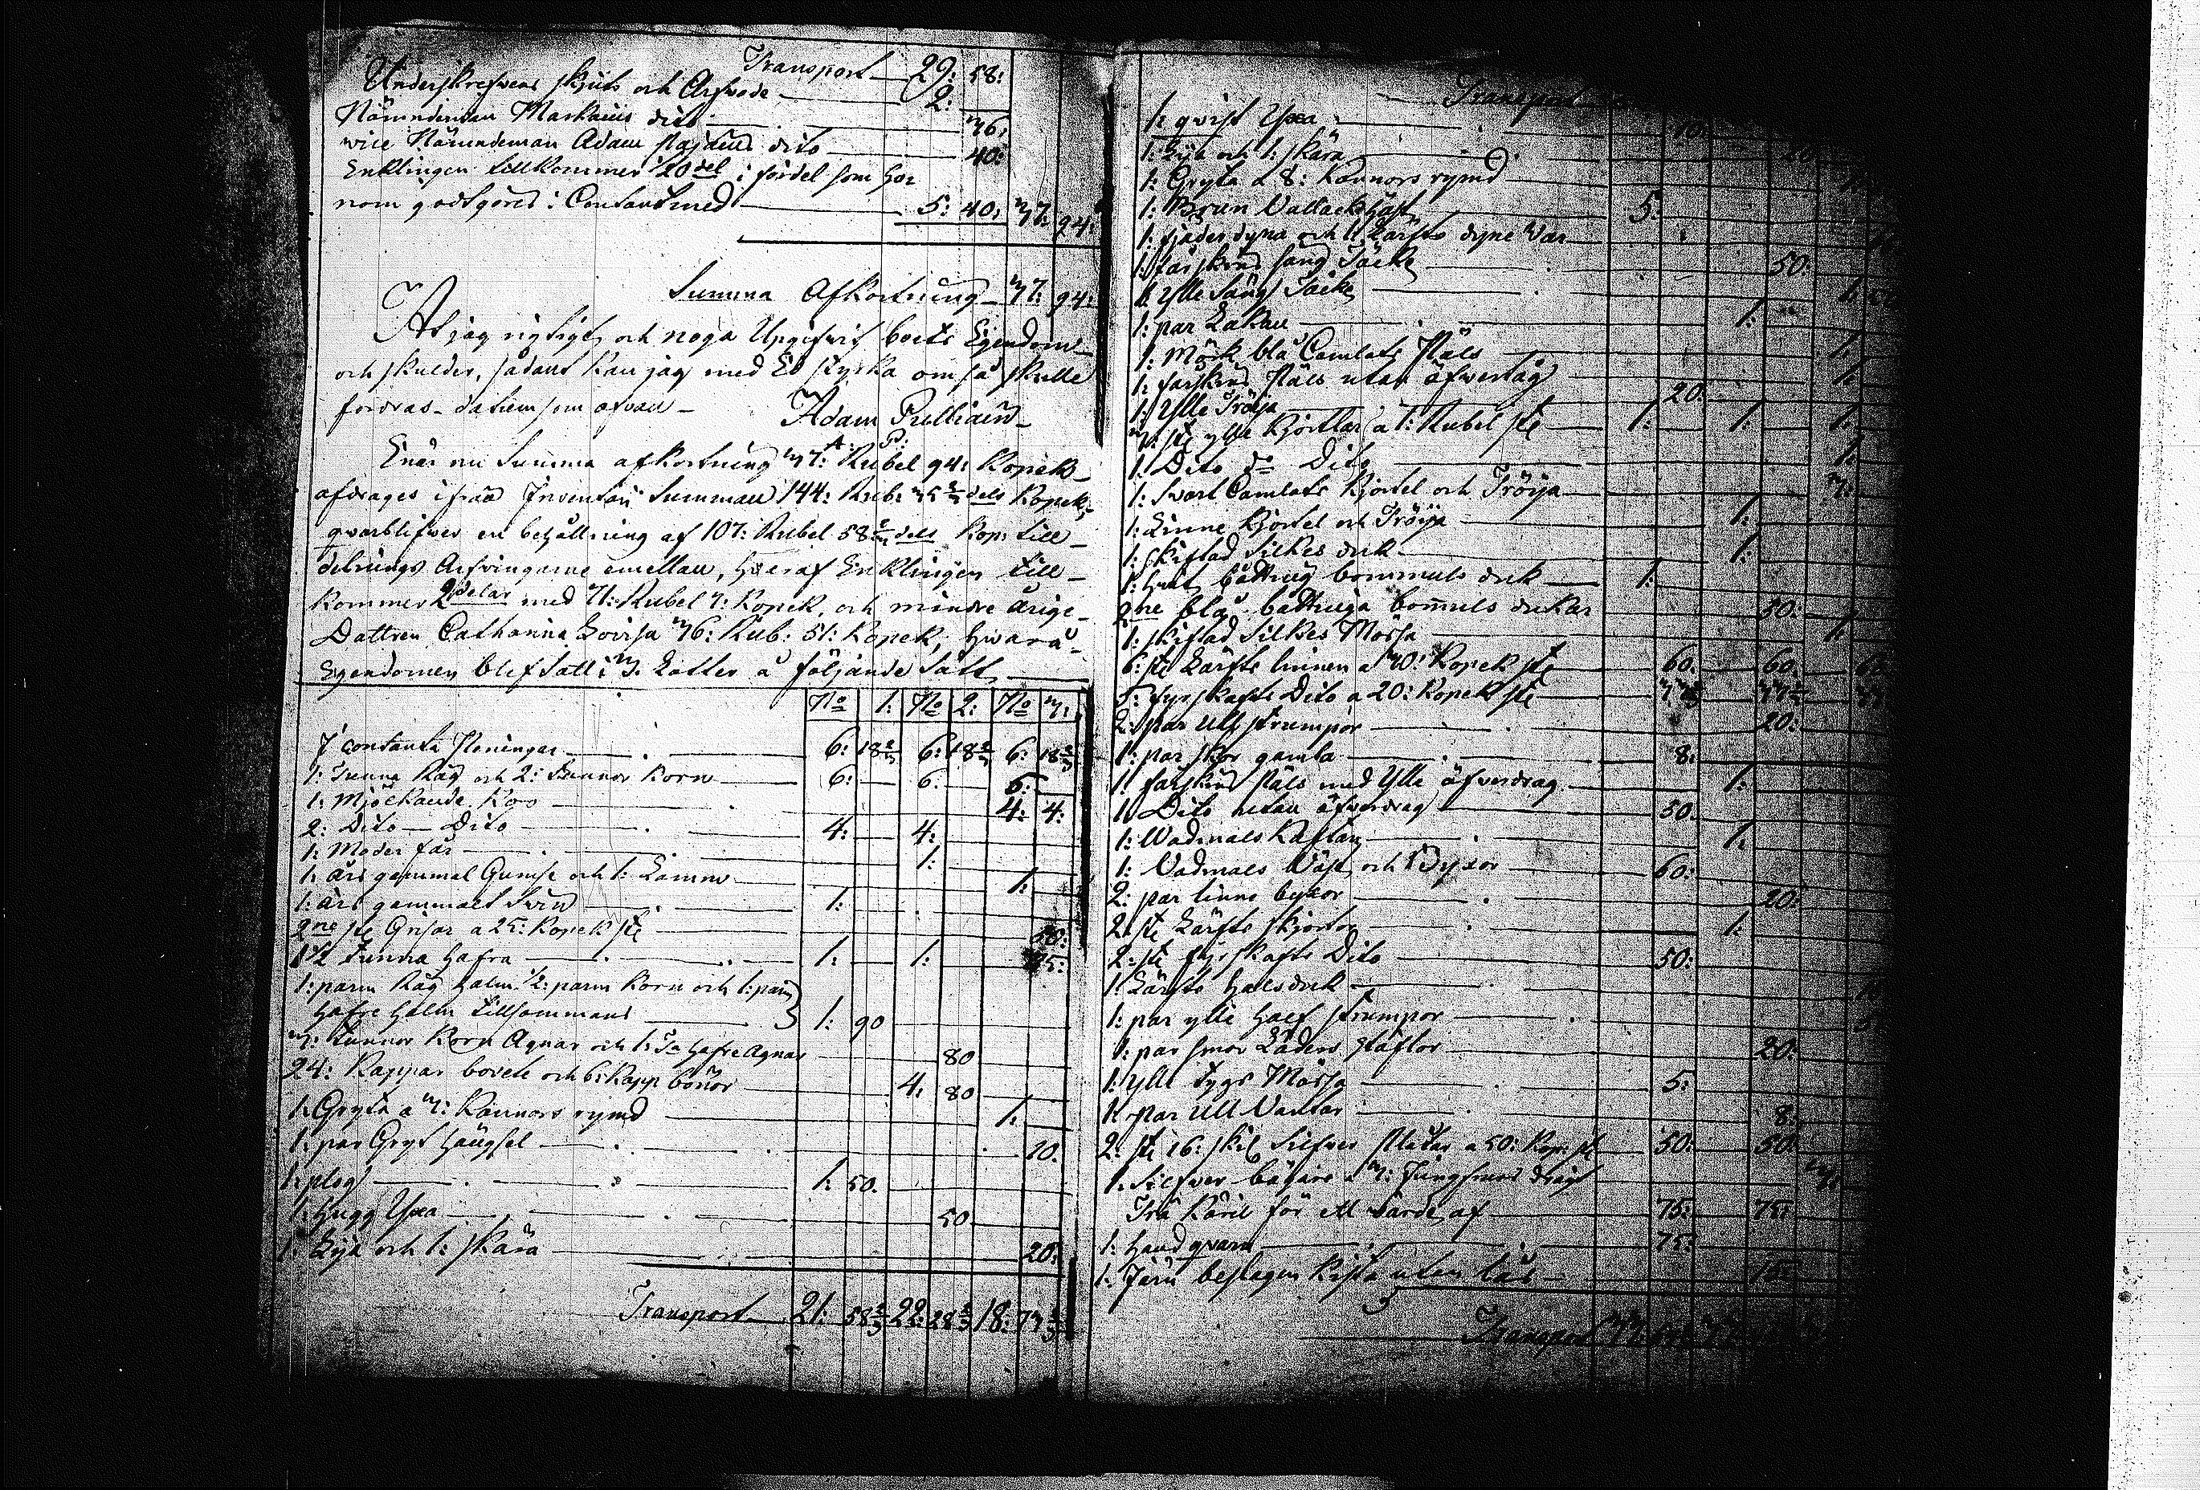 Transport 29: 58:
Underskrefwens skjuts och Arfwode 2:
Nämndeman Markuus dito 36:
vice Nämndeman Adam dito 40:
Enklingen tillkommer 20del i fördel som ho-
nom godtgöres i Contant med 5: 40: 37: 94:
Summa Afkortning 37: 94:
At jag rigtigt och noga Upgifwit boets Egendom
och skulder, sådant kan jag med Ed styrka om så skulle
fordras datum som ofvan Adam
Enär nu Summa afkortning 37: Rubel 94: Kopek
afdrages ifrån Inventarii Summan 144: Rub: Kopek,
qvarblifwer en behållning af 107: Rubel 58 dels Kop: till
delnings Arfvingarne emellan, hwaraf Enklingen till-
kommer 2 delar med 71: Rubel 7: Kopek, och mindre årige
Dottren Catharina Lovisa 36: Rub: 51: Kopek, hwarå
Egendomen blef satt i 3: Lotter å följande sätt,
No 1: No 2: No 3:
I contanta Peningar 6: 18 2/3 6: 18 2/3 6: 18 2/3
1: Tunna Råg och 2: Tunnor Korn 6: 6: 6:
1: Mjölkande Koo 4: 4:
2: Dito Dito 4: 4:
1: Moder får 1:
1: års gammal Gumse och 1: Lamm 1:
1: års gammalt Swin 1:
2ne st Grisar a 25: Kopek st 50:
1 1/2 Tunna Hafra 1: 1: 75:
1: parm Råg halm 1/2: parm Korn och 1: parm
Hafre Halm tillsammans 1: 90
3: Tunnor Korn Agnar och 1: Ta Hafre Agnar 80
24: Kappar bovete och 6: Kapp bönor 4: 80
1: Gryta a 3: Kannors rymd 1:
1: par Gryt hängsel 10.
1: plog 1: 50.
1: Hugg Yxa 50
1: Lija och 1: skära 20:
Transport 21: 58 2/3 22: 28 2/3 18: 73 2/3
Transport
1: qvist Yxa 10:
1: Lija och 1: skära 20
1: Gryta a 8: Kannors rymd
1: Brun Vallack Häst 5:
1: fjäder dyna och 1: Lärfts dyne Var
1: fårskins säng Täcke 50:
1: Ylle Säng Täcke 1: 50
1: par Lakan 1:
1: Mörk blå Camlots Päls 1:
1: fårskins Päls utan öfwertåg 1:
1: Ylle Tröija 20:
3: st ylle Kjortlar a 1: Rubel st 1: 1: 1:
1: Dito do Dito 1:
1: Svart Camlots Kjortel och Tröija 3:
1: Linne Kjortel och Tröija 1:
1: skiftad Silkes duk 1:
1: hvit båttnig bommuls duk 1:
2ne blå båttniga bommuls dukar 50:
1: skiftad Silkes Mössa 1:
6: st Lärfts linnen a 30: Kopek st 60: 60: 60
5: fyrskafts Dito a 20: Kopek st
2: par Ull strumpor 20:
1: par skor gamla 8:
1: fårskins Päls med Ylle öfverdrag 1:
1: Dito utan öfwerdrag 50:
1: Wadmals Kaftan 1:
1: Vadmals Väst och Byxor 60:
2: par linne byxor 20:
2: st Lärfts skjortor 1:
2: st fyrskafts Dito 50:
1: Lärfts halsduk
1: par ylle half strumpor
1: par smor Läders stöflor 20:
1: Ylle tygs Mössa 5:
1: par Ull Vantar 8:
2: st 16: skil Silfver Platar a 50: Kop: st 50: 50:
1: Silfver bägare a 3: Jungfrurs drygt
Trä Käril för ett värde af 75: 75:
1: Handqvarn 75:
1: Järn beslagen Kista utan lås 75:
Transport